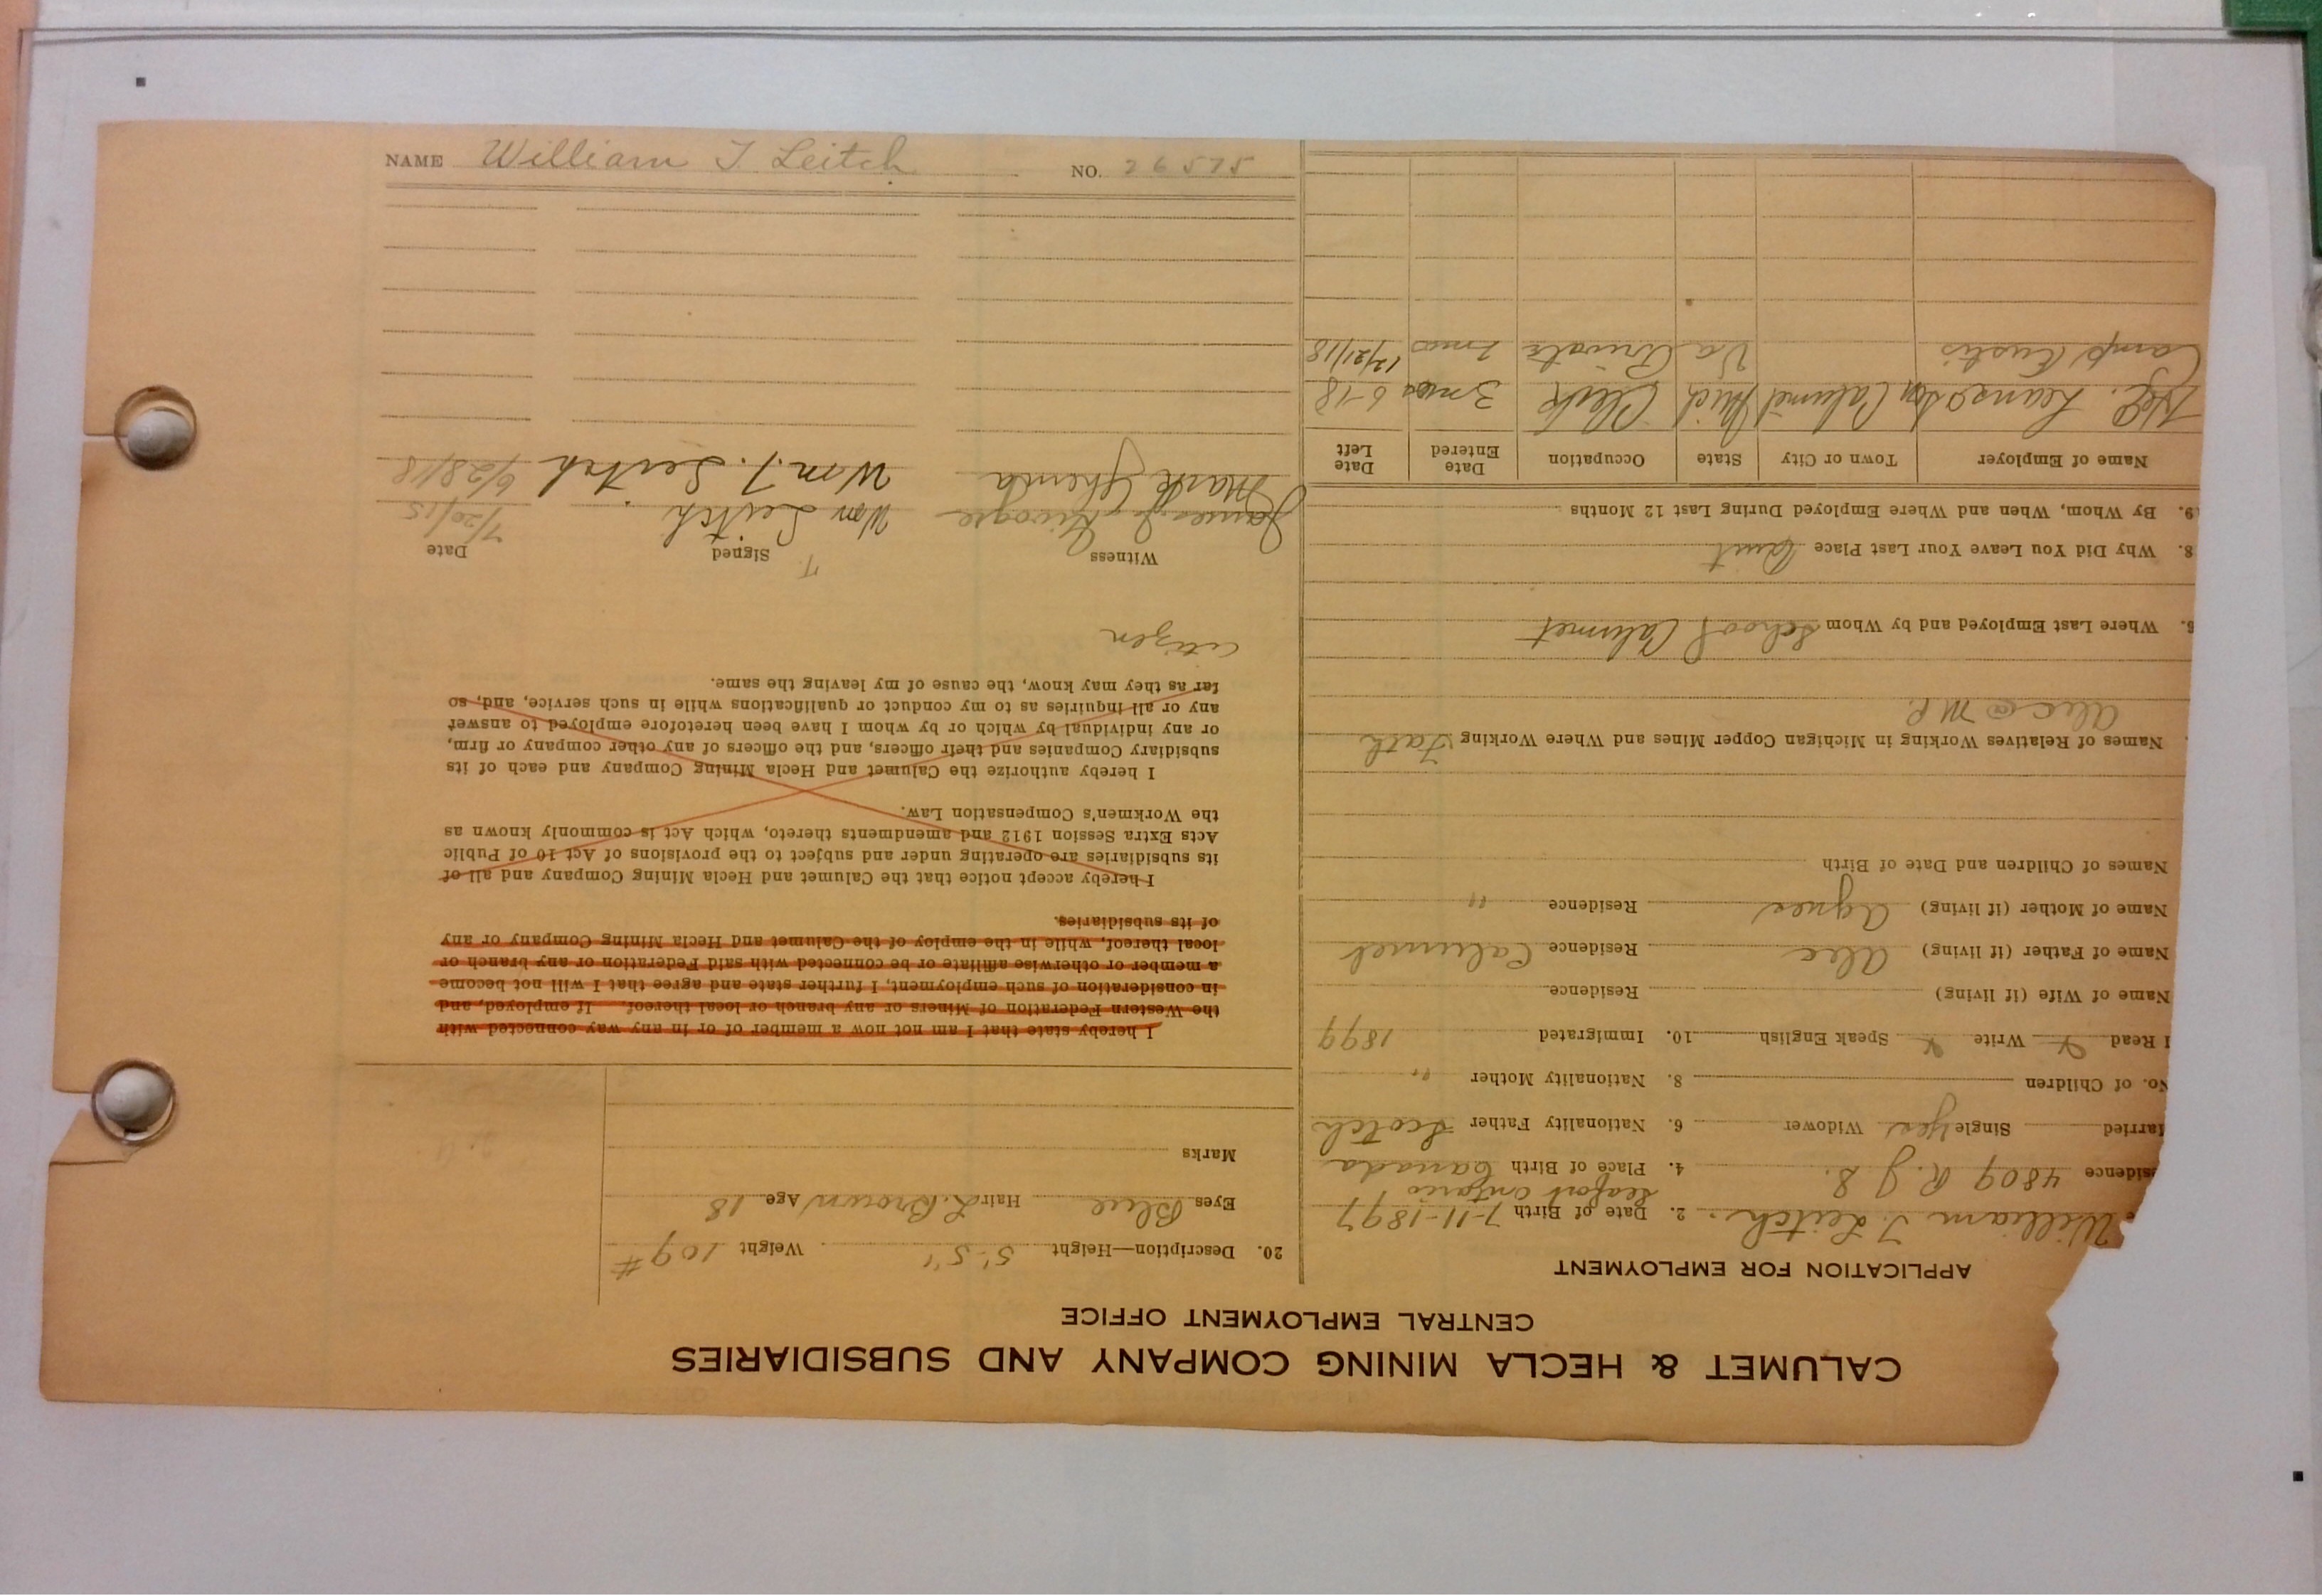 CALUMET & HECLA MINING COMPANY AND SUBSIDIARIES
CENTRAL EMPLOYMENT OFFICE
APPLICATION FOR EMPLOYMENT
William T. Leitch. 2. Date of Birth 7-11-1897
Seafort Ontario
sidence 4809 R. J. S. 4. Place of Birth Canada
arried Single Yes. Widower 6. Nationality Father Scotch
No. of Children 8. Nationality Mother "
I Read Y Write Y Speak English 10. Immigrated 1899
Name of Wife (if living) Residence
Name of Father (if living) Alec Residence Calumet
Name of Mother (if living) Agnes Residence "
Names of Children and Date of Birth
Names of Relatives Working in Michigan Copper Mines and Where Working Fath
Alec @ M R.
Where Last Employed and by Whom School Calumet
8. Why Did You Leave Your Last Place Quit
9. By Whom, When and Where Employed During Last 12 Months
Name of Employer Town or City State Occupation Date Entered Date Left
Calumet Mich Clerk 3 mos 6-18
Camp Eustis Va Private 2 mos 12/21/18
20. Description—Height 5'-5" Weight 109#
Eyes Blue Hair L. Brown Age 18
Marks
I hereby state that I am not now a member of or in any way connected with
the Western Federation of Miners or any branch or local thereof. If employed, and
in consideration of such employment, I further state and agree that I will not become
a member or otherwise affiliate or be connected with said Federation or any branch or
local thereof, while in the employ of the Calumet and Hecla Mining Company or any
of its subsidiaries.
I hereby accept notice that the Calumet and Hecla Mining Company and all of
its subsidiaries are operating under and subject to the provisions of Act 10 of Public
Acts Extra Session 1912 and amendments thereto, which Act is commonly known as
the Workmen's Compensation Law.
I hereby authorize the Calumet and Hecla Mining Company and each of its
subsidiary Companies and their officers, and the officers of any other company or firm,
or any individual by which or by whom I have been heretofore employed to answer
any or all inquiries as to my conduct or qualifications while in such service, and, so
far as they may know, the cause of my leaving the same.
citizen
Witness Signed Date
T.
James Wm Leitch 7/20/15
Mark Wm T. Leitch 6/28/18
NAME William T Leitch NO. 26575